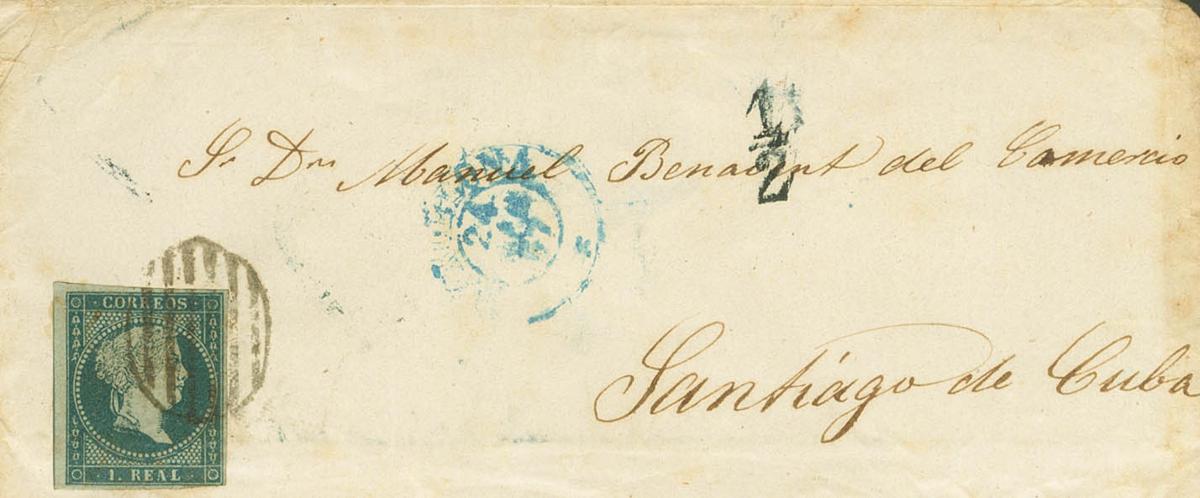 1/2
Sr. Dn. Manuel Benavent del Comercio
24
Santiago de Cuba
CORREOS
1. REAL